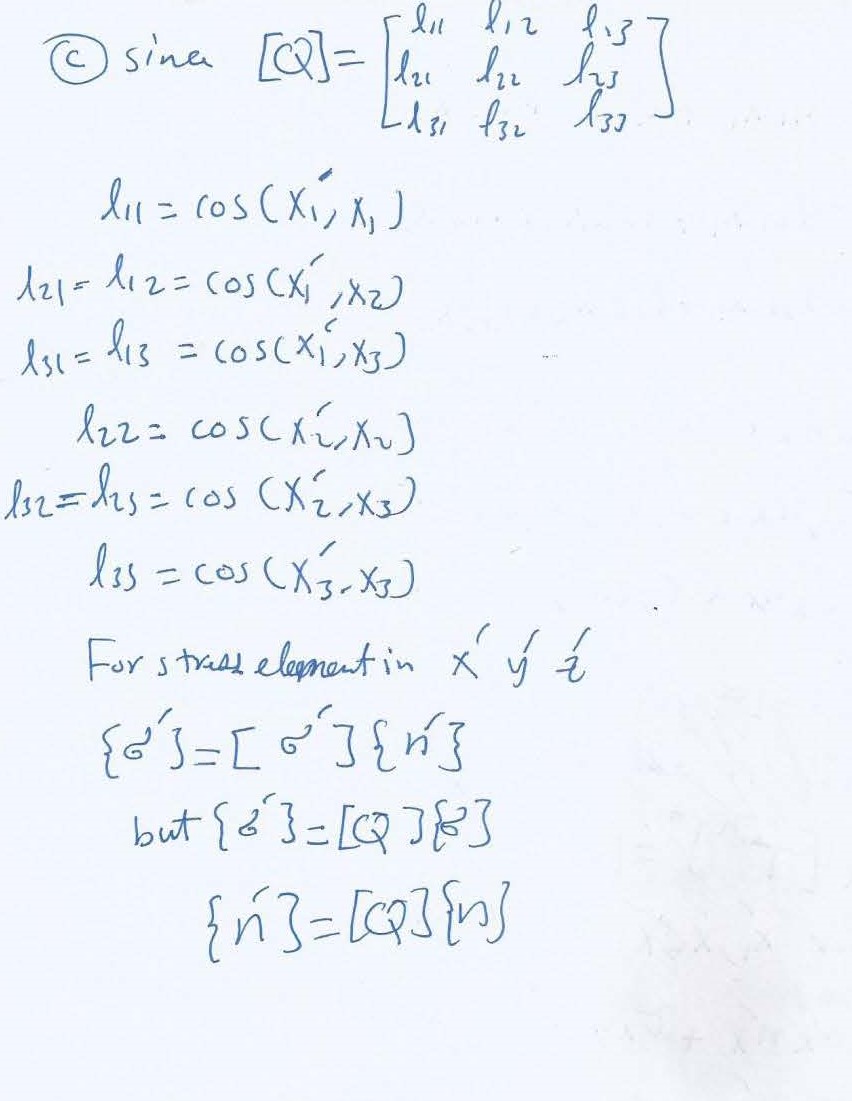 ⓒ since [Q] = [l11 l12 l13
l21 l22 l23
l31 l32 l33]
l11 = cos(x1′, x1)
l21 = l12 = cos(x1′, x2)
l31 = l13 = cos(x1′, x3)
l22 = cos(x2′, x2)
l32 = l23 = cos(x2′, x3)
l33 = cos(x3′, x3)
For stress element in x′ y′ z′
{σ′} = [σ′]{n′}
but {σ′} = [Q]{σ}
{n′} = [Q]{n}